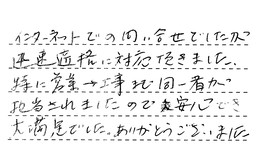 インターネットでの問い合せでしたが
迅速適格に対応頂きました。
特に営業→工事まで同一者が
担当されましたので安心でき
大満足でした。ありがとうございました